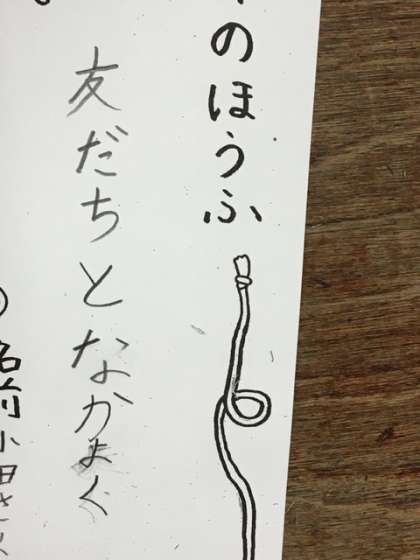 のほうふ
友だちとなかよく
名前 小田